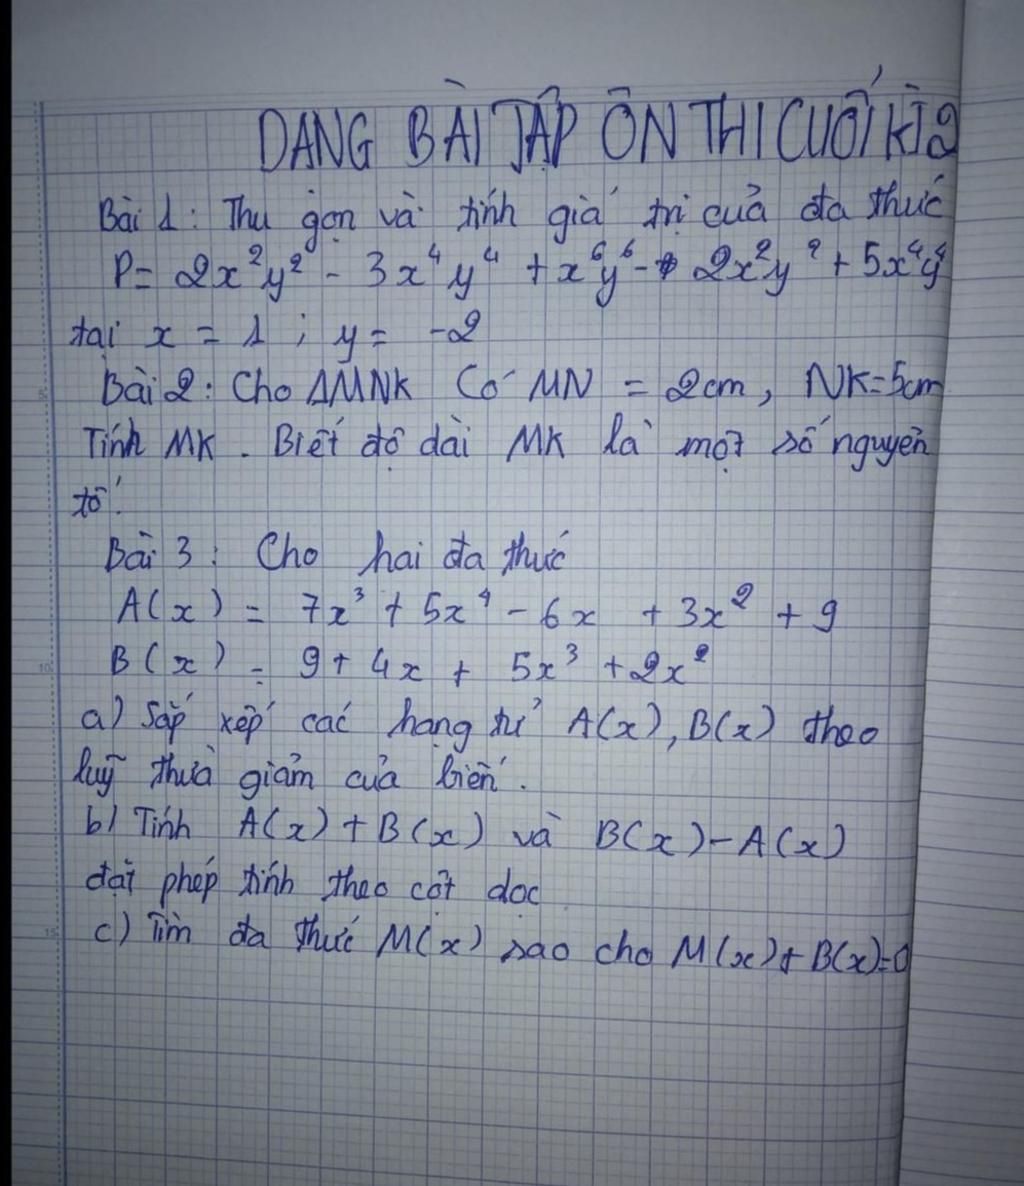 DANG BÀI TẬP ÔN THI CUỐI KÌ 2
Bài 1: Thu gọn và tính giá trị của đa thức
P = 2x²y² - 3x⁴y⁴ + x⁶y⁶ - 2x²y² + 5x⁴y⁴
tại x = 1 ; y = -2
Bài 2: Cho ΔMNK Có MN = 2cm, NK=5cm
Tính MK. Biết độ dài MK là một số nguyên
tố.
Bài 3: Cho hai đa thức
A(x) = 7x³ + 5x⁴ - 6x + 3x² + 9
B(x) = 9 + 4x + 5x³ + 2x²
a) Sắp xếp các hạng tử A(x), B(x) theo
luỹ thừa giảm của biến.
b) Tính A(x) + B(x) và B(x) - A(x)
đặt phép tính theo cột dọc
c) Tìm đa thức M(x) sao cho M(x) + B(x)=0
5
10
15